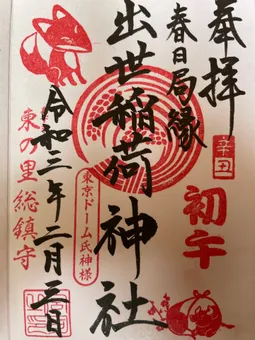 奉拝
辛丑
初午
春日局縁
出世稲荷神社
東京ドーム氏神様
令和三年二月三日
東の里総鎮守